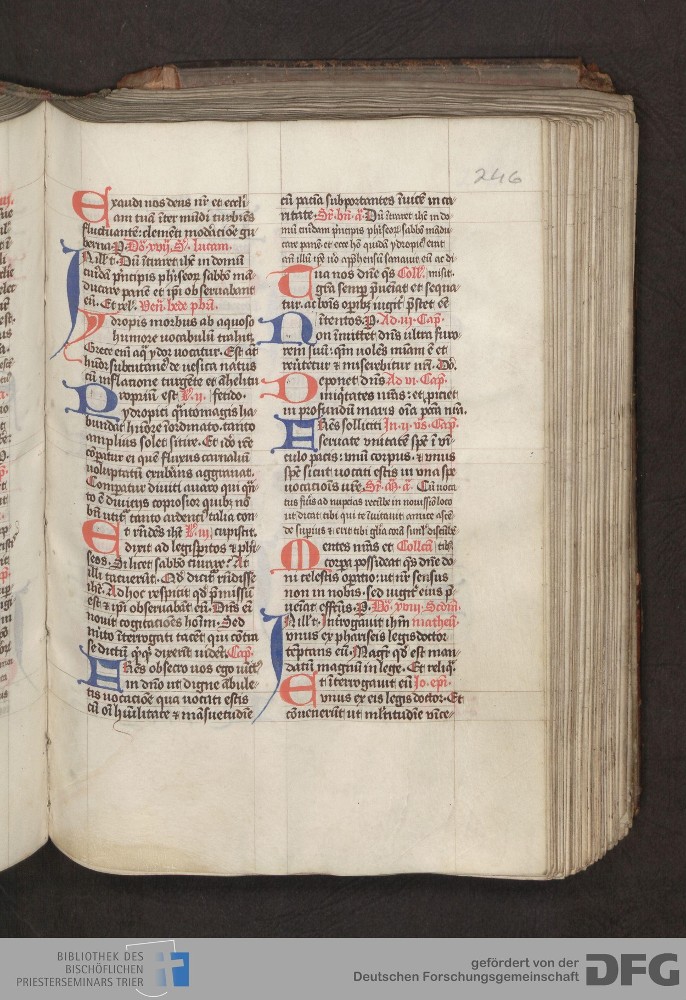 246
Exaudi nos deus nr̄ et eccli
am tuā īter mūdi turbīes
fluctuantē: clemēti modaciōe gu
berna. P. Dō. xvij. S. lucam.
In ill̄ t. Dū ītraret ih̄c in domū
cuiusdā pͥncipis phi͛seoꝝ sabbō mā
ducare panē et ip̄i observabant
eū. Et rel. Ven̄. bede prbri.
Ydropis morbus ab aquoso
humore vocabulū trahit.
Grece enī aq̄ ydor vocatur. Est aūt
humor subcutane9 de vesica natus
cū inflacione turgēte et ahelitu
Propriū est L. ij. fetido.
ydropici qͥnto magis ha
bundat humore īordinato. tanto
amplius solet sitire. Et iō rc̄te
cōpatur ei quē fluxus carnaliū
voluptatū exubans aggravat.
Compatur diviti avaro qui qͣn
to ē divicijs copiosior quibꝫ nō
bn̄ utit̄ tanto ardenci talia con
Et rn̄dēs ih̄c L. iij. cupiscit.
dixit ad legisp̄itos et phi͛
seos. Si licet sabbō curare? At
illi tacuerūt. Qd̄ dicit̄ rn̄disse
ih̄c. Ad hoc respicit qd̄ p̄missū
est et ip̄i observabāt eū. Dn̄s eī
novit cogitacōes hoīm. Sed
mito īterrogati tacēt qui cōtra
se dictū qͥqͥd dixerīt vidēt. Cap̄.
Fr̄es obsecro vos ego vīctꝰ
in dn̄o ut digne ābule
tis vocaciōe qua vocati estis
cū oī hūilitate et māsuetudīe
cū paciā subportantes īvicē in ca
ritate. Sr̄. bn̄. a͞. Dū ītraret ih̄c in do
mū cuiusdam pͥncipis phi͛seoꝝ sabbō mādu
care panē et ecce hō quidā ydropicꝰ erat
añ illū ip̄e v̄o app̄hensū sanavit eū ac di
Tua nos dn̄e qs̄ Coll. misit.
gr̄a semꝑ p̄veiat et sequa
tur. ac bōis opibꝫ iugit̄ p̄stet eē
intentos. P. Ad. vi. Cap̄.
Non īmittet dn̄s ultra furo
rem suū. qm̄ volēs m̄iam ē et
rev̄tetur et miserebitur nr̄i. Dō.
Deponet dn̄s Ad vi. Cap̄.
iniqͥtates nr̄as: et piciet
in profundū maris oīa pcc̄a nr̄a.
Fr̄es solliciti In. ij. vs. Cap̄.
servate unitatē sp̄c ī vī
culo pacis: unū corpus. et unus
sp̄c sicut vocati estis in una spe
vocaciōis vr̄e. Sr̄. M. a͞. Cū voca
tus fu̇is ad nupcias recūbe in novissiō loco
ut dicat tibi qui te īvitavit amice ascē
de suprius et erit tibi gl̄ia corā siml̓ discūbe
Mentes nr̄as et Collect̄. tibꝫ
corpa possideat qs̄ dn̄e do
ni celestis opatio: ut nr̄ sensus
non in nobis. sed iugit̄ eiuꝰ p̄
veiat effc̄tus. P. Dō. xviij. Scdm̄.
In ill̄ t. Introgavit ih̄m matheū.
vnus ex phariseis legis doctor
tēptans eū. Magr̄ qd̄ est man
datū magnū in lege. Et reliq̄.
Et īterrogavit eū Jo. epī.
unus ex eis legis doctor. Et
cōvenerūt ut ml̓titudīe vīce
BIBLIOTHEK DES
BISCHÖFLICHEN
PRIESTERSEMINARS TRIER
gefördert von der
Deutschen Forschungsgemeinschaft
DFG